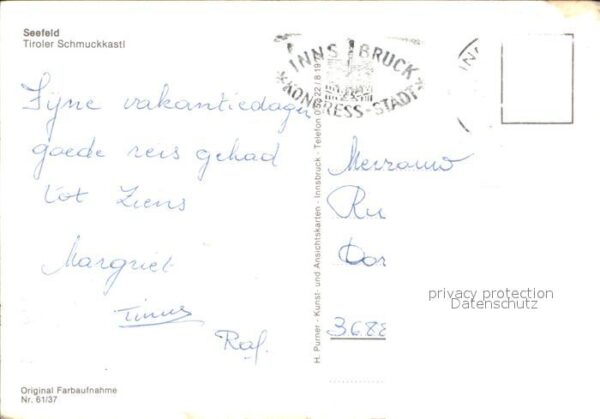 Seefeld
Tiroler Schmuckkastl
INNSBRUCK
KONGRESS-STADT
Fijne vakantiedagen
goede reis gehad
tot ziens
Margriet
Timus
Raf.
H. Purner - Kunst- und Ansichtskarten - Innsbruck - Telefon
Ru
Dor
3688
privacy protection
Datenschutz
Original Farbaufnahme
Nr. 61/37